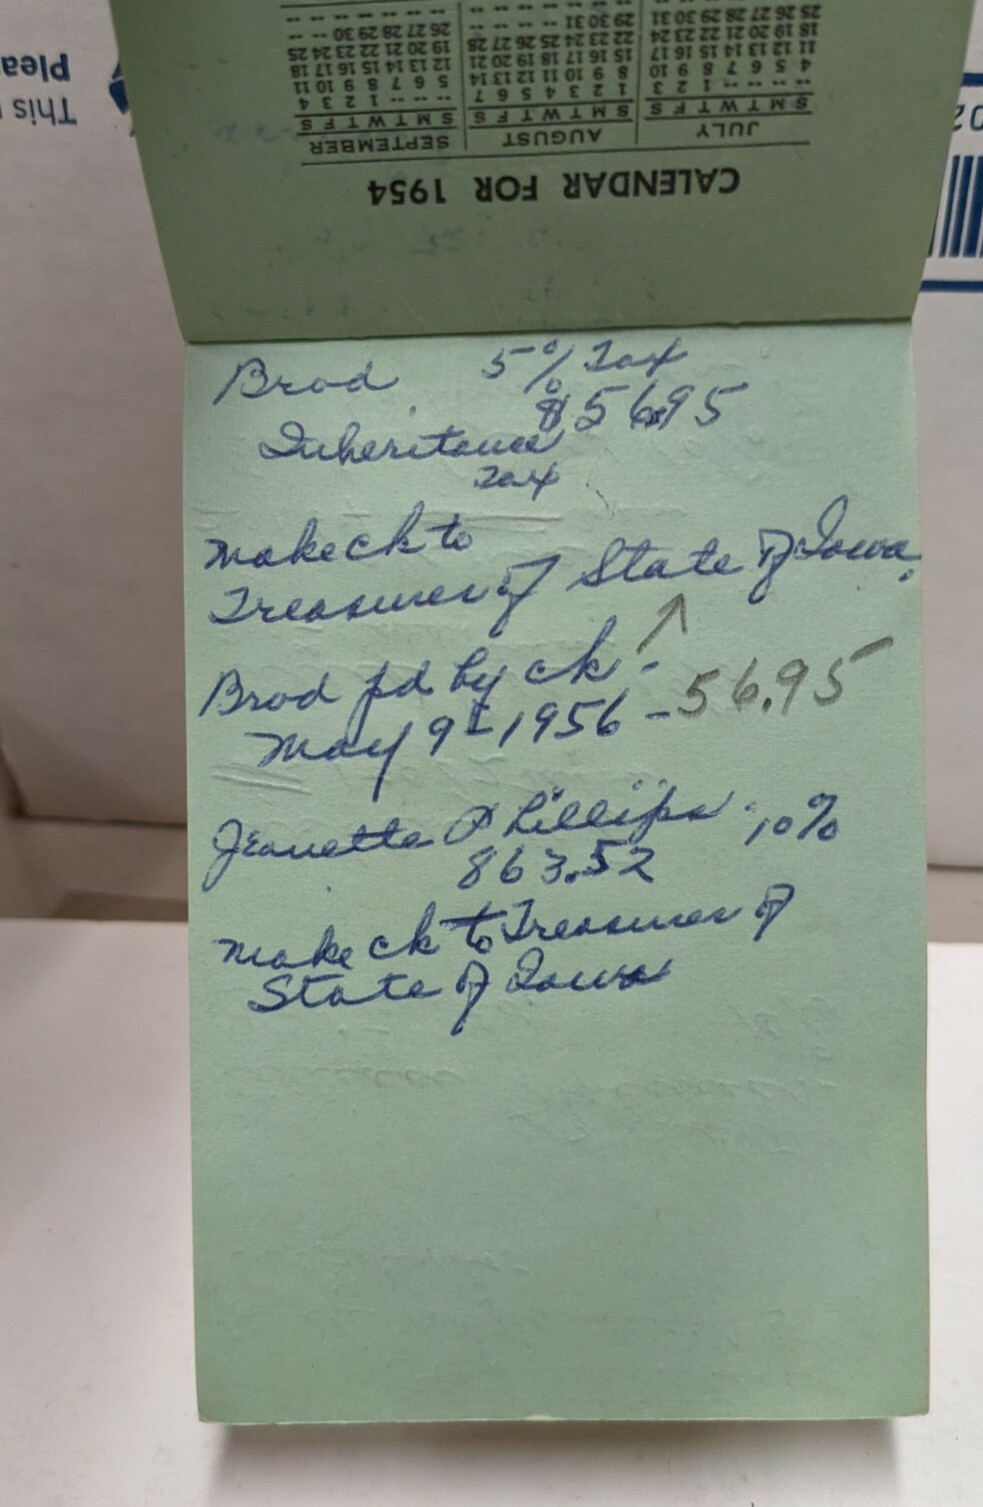 This
Pleas
CALENDAR FOR 1954
JULY AUGUST SEPTEMBER
S M T W T F S S M T W T F S S M T W T F S
-- -- -- -- 1 2 3 1 2 3 4 5 6 7 -- -- -- 1 2 3 4
4 5 6 7 8 9 10 8 9 10 11 12 13 14 5 6 7 8 9 10 11
11 12 13 14 15 16 17 15 16 17 18 19 20 21 12 13 14 15 16 17 18
18 19 20 21 22 23 24 22 23 24 25 26 27 28 19 20 21 22 23 24 25
25 26 27 28 29 30 31 29 30 31 -- -- -- -- 26 27 28 29 30 -- --
Brod 5% Tax
$56.95
Inheritance
Tax
Make ck to
Treasurer of State of Iowa.
Brod pd by ck -
May 9 - 1956 - 56.95
Jeanette Phillips - 10%
863.52
Make ck to Treasurer of
State of Iowa